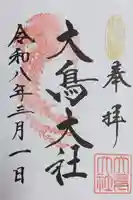 奉拝
大鳥大社
令和八年三月一日